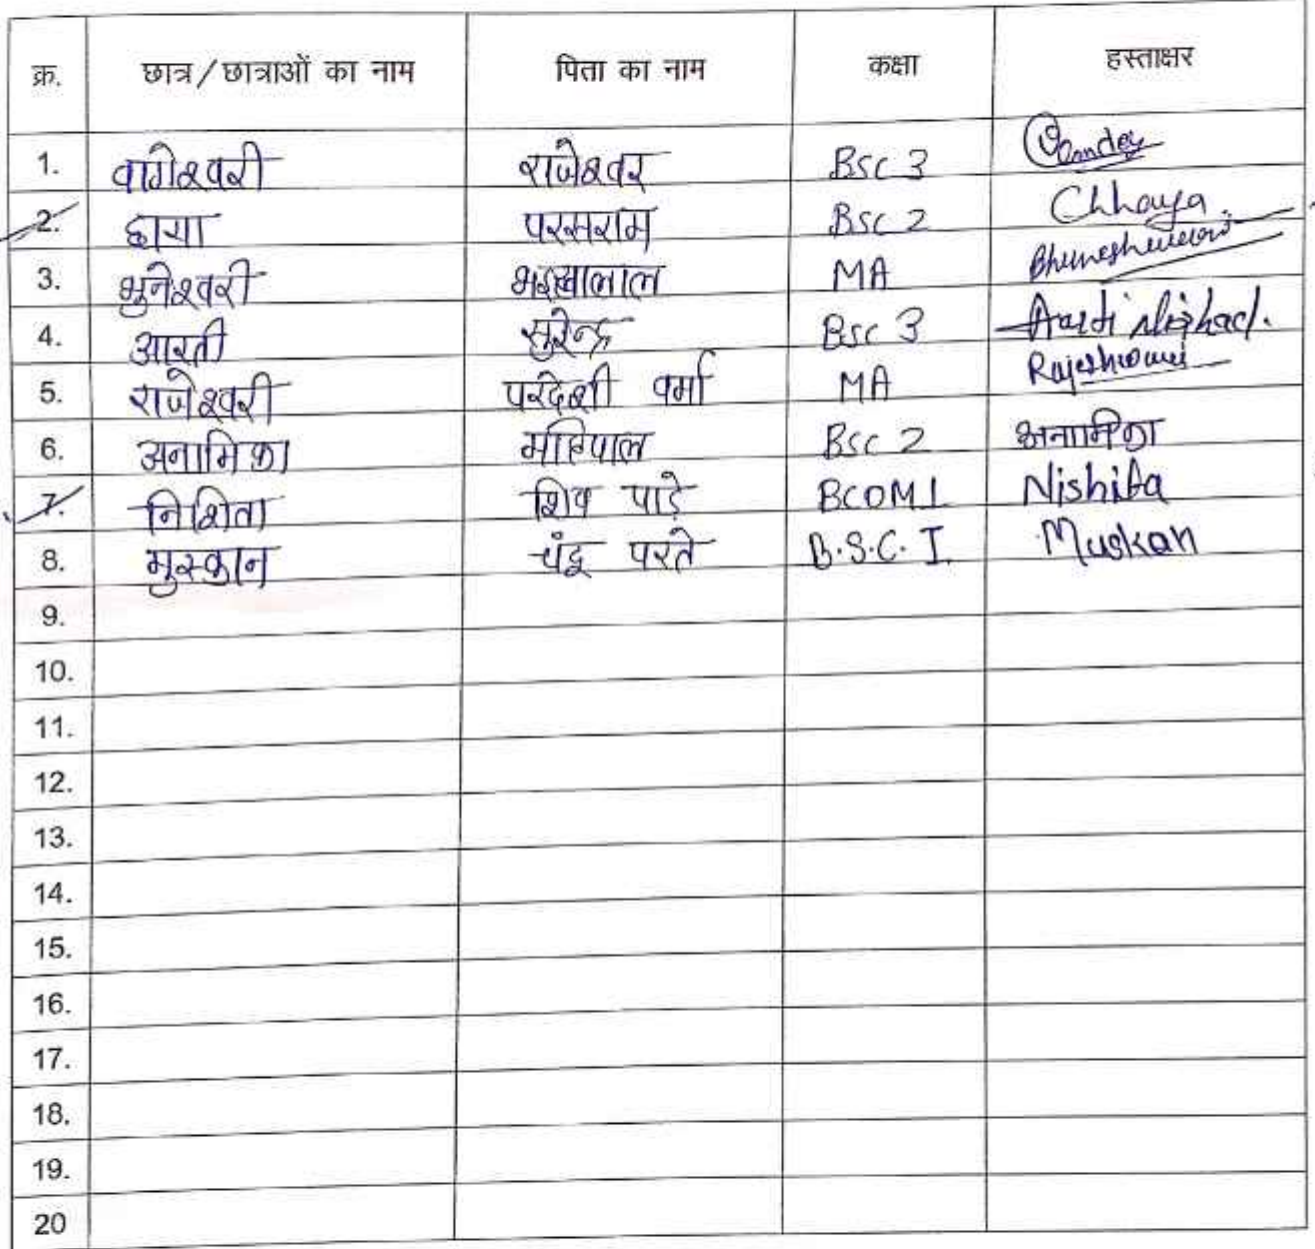 क्र. छात्र/छात्राओं का नाम पिता का नाम कक्षा हस्ताक्षर
1. वागेश्वरी राजेश्वर BSC 3
2. छाया परसराम BSC 2 Chhaya
3. भुनेश्वरी MA Bhuneshwari
4. आरती सुरेन्द्र BSC 3 Aarti Nishad.
5. राजेश्वरी परदेशी वर्मा MA Rajeshwari
6. अनामिका महिपाल BSC 2 अनामिका
7. निशिता शिव पाड़े BCOM 1 Nishita
8. मुस्कान चंदू परते B.S.C. I. Muskan
9.
10.
11.
12.
13.
14.
15.
16.
17.
18.
19.
20